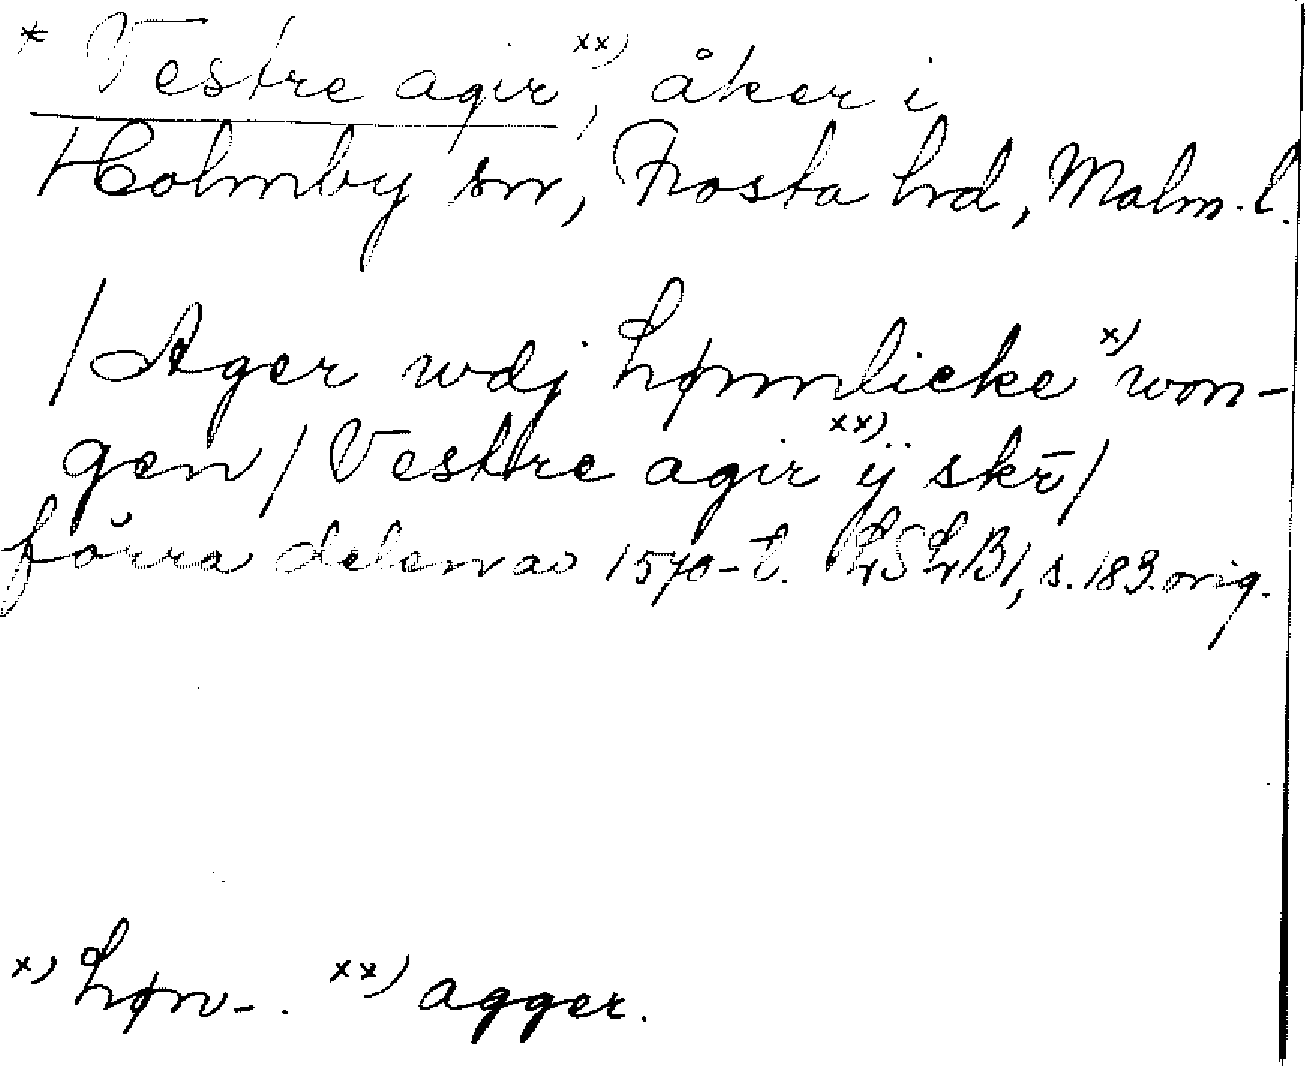 * Vestre agir xx), åker i
Holmby sn, Frosta hrd, Malm. l.
/Ager wdj hønnlicke x) won-
gen/Vestre agir xx) ÿ skē/
förra delen av 1570-t. LSLB1, s. 183. orig.
x) høn-. xx) agger.